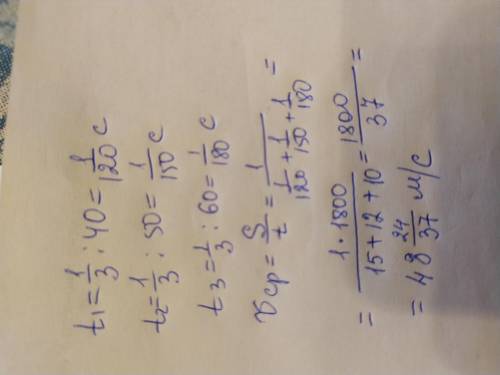 t₁ = 1/3 : 40 = 1/120 с
t₂ = 1/3 : 50 = 1/150 с
t₃ = 1/3 : 60 = 1/180 с
Vср = S/t = 1/(1/120 + 1/150 + 1/180) =
= 1·1800/(15+12+10) = 1800/37 =
= 48 24/37 м/с